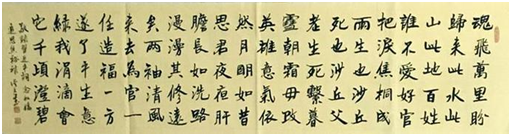 魂飛萬里盼
歸來此水此
山此地百姓
誰不愛好官
把淚焦桐成
雨生也沙丘
死也沙丘父
老生死繫暮
雪朝霜毋改
英雄意氣依
然月明如昔
思君夜夜肝
膽長如洗路
漫漫其修遠
矣兩袖清風
來去為官一
任造福一方
遂了平生意
綠我涓滴會
它千頃澄碧
敬錄習近平詞念奴嬌
追思焦裕祿